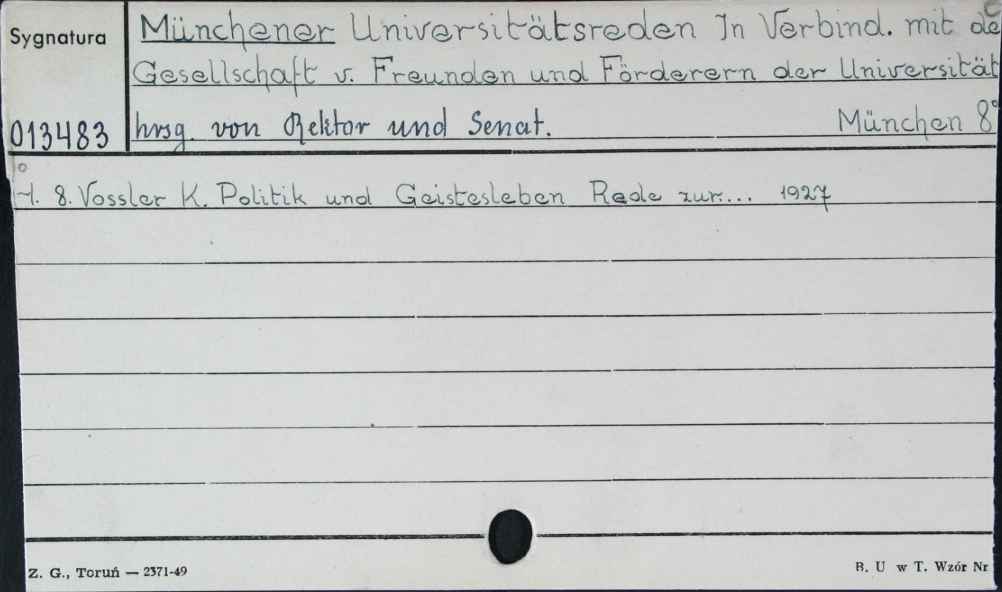 Sygnatura
Münchener Universitätsreden In Verbind. mit de
Gesellschaft v. Freunden und Förderern der Universität
013483
hrsg. von Rektor und Senat. München 8°
H. 8. Vossler K. Politik und Geistesleben Rede zur... 1927
Z. G., Toruń — 2371-49
B. U w T. Wzór Nr